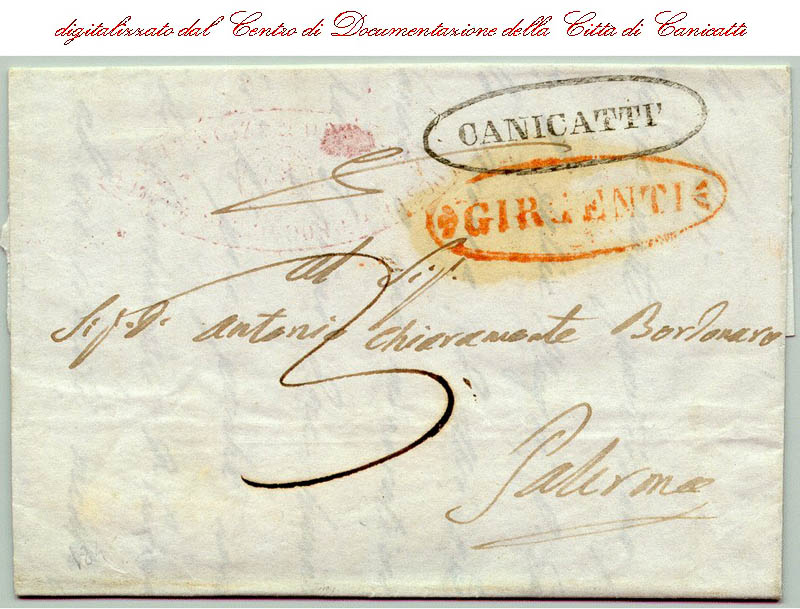 digitalizzato dal Centro di Documentazione della Città di Canicattì
CANICATTI'
GIRGENTI
Al Sig.
Sig. D. Antonio Chiaramonte Bordonaro
3
Palermo